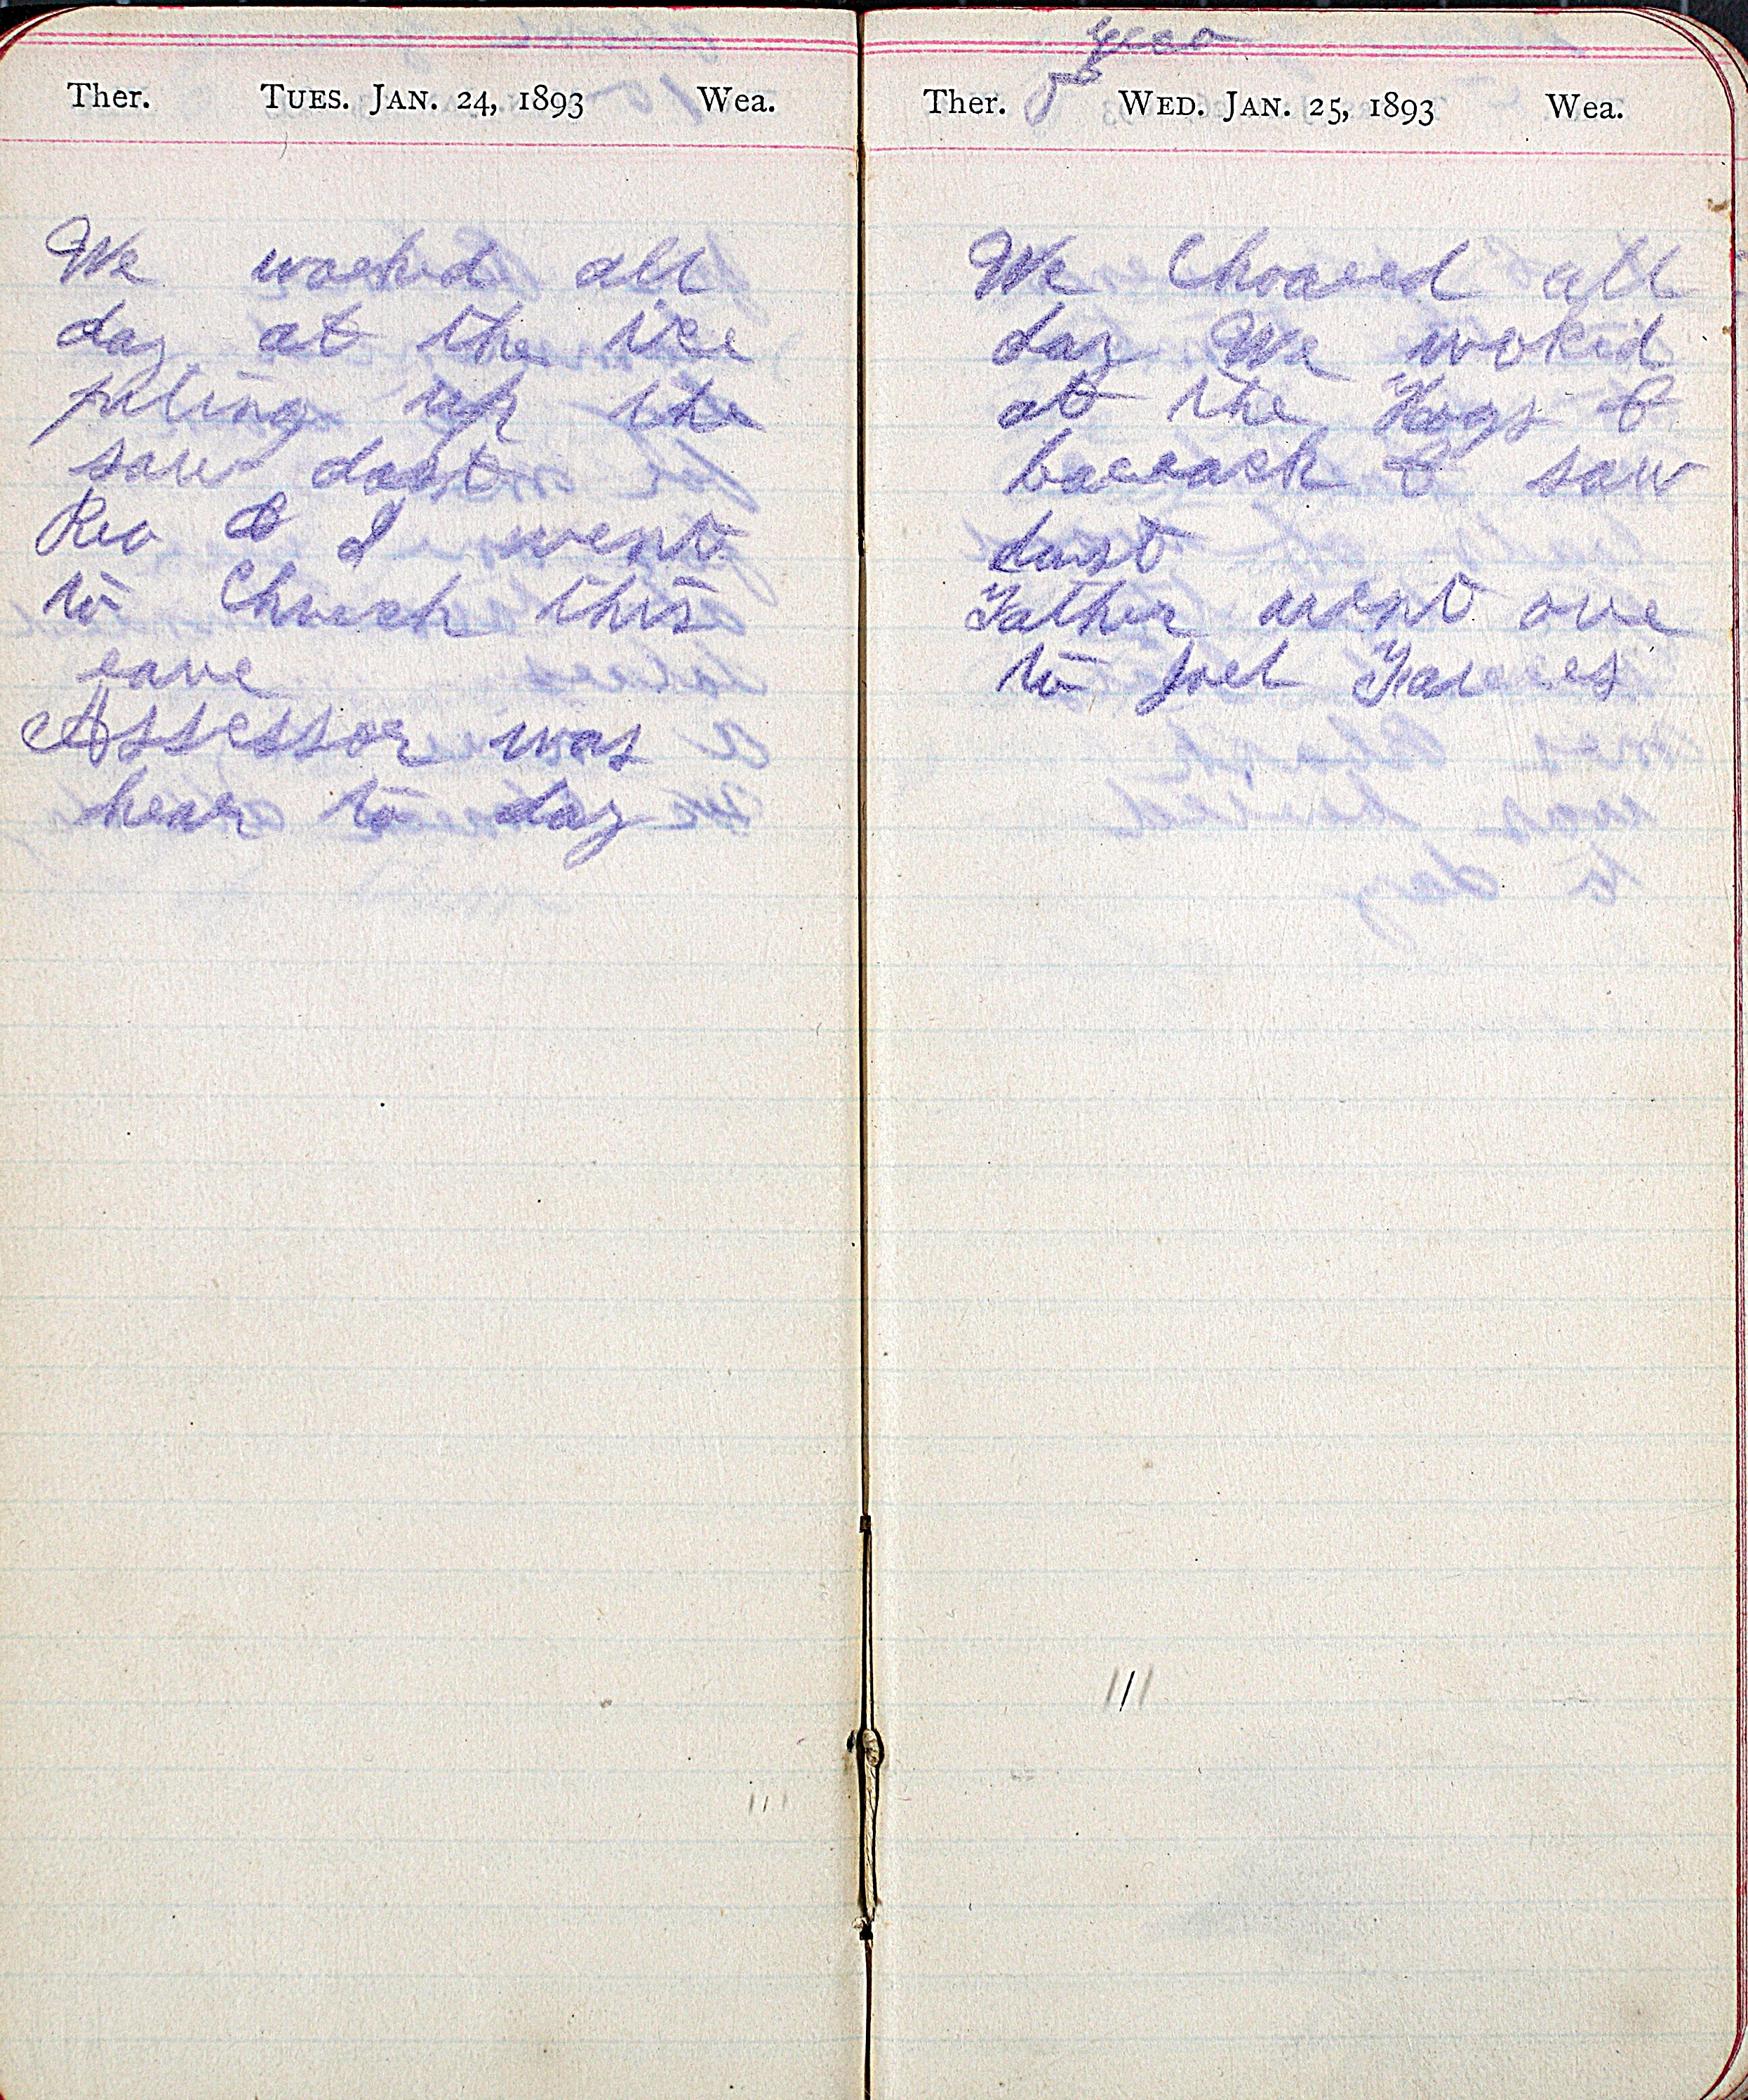 Ther. TUES. JAN. 24, 1893 Wea.
We worked all
day at the ice
pileing up the
saw dost
Rev & I went
to Chuerch this
eave
Assessor was
hear to day
Ther. WED. JAN. 25, 1893 Wea.
We Choared all
day We wokid
at the Hogs &
barrack & saw
dust
Father went ove
to Joel